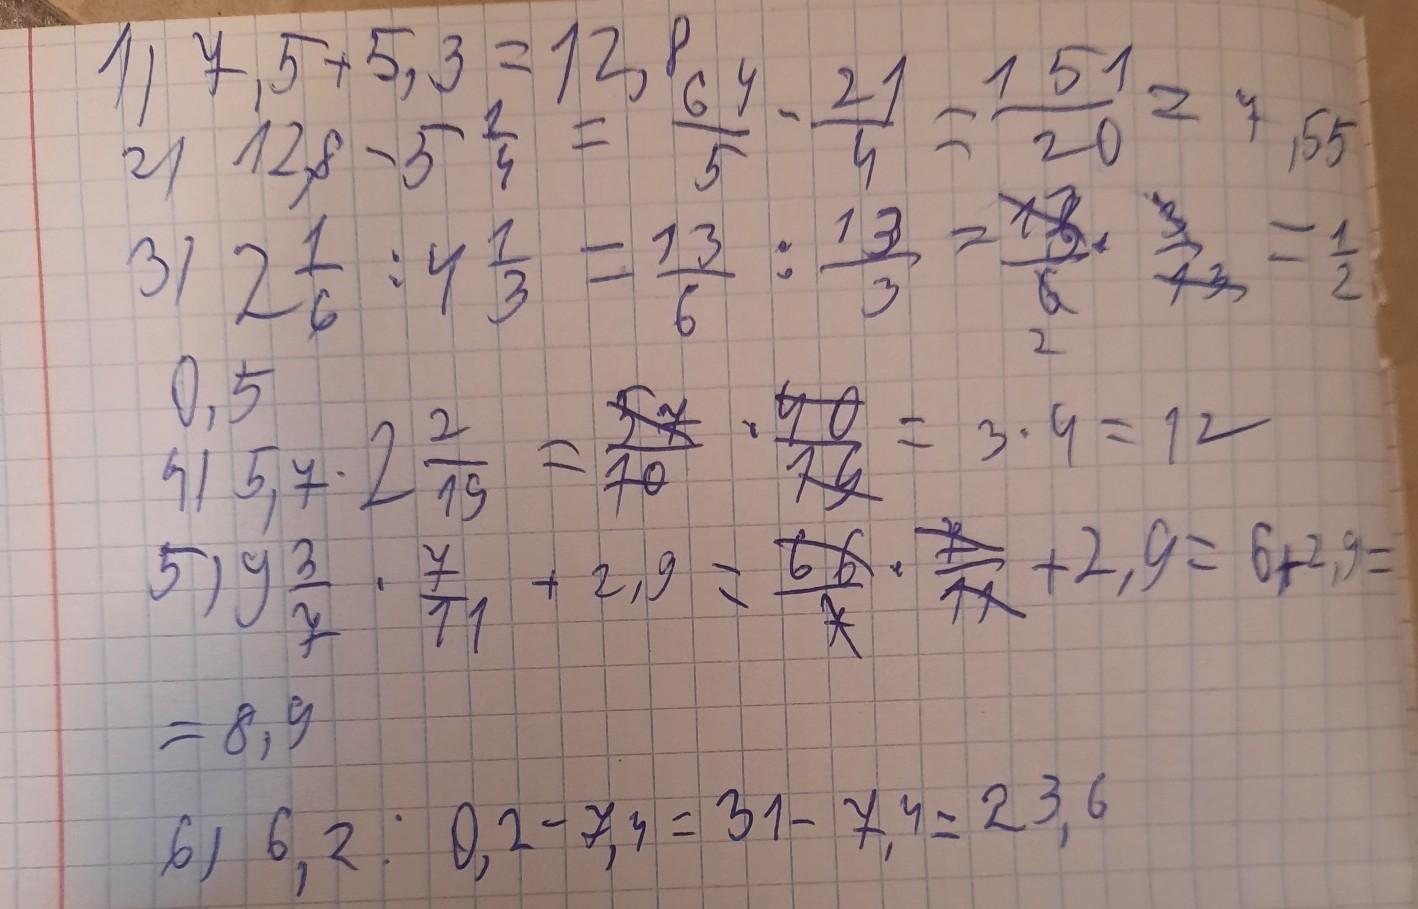 1) 7,5+5,3=12,8
2) 12,8-5 1/4 = 64/5 - 21/4 = 151/20 = 7,55
3) 2 1/6 : 4 1/3 = 13/6 : 13/3 = 13/6 · 3/13 = 1/2
2
0,5
4) 5,7 · 2 2/19 = 57/10 · 40/19 = 3·4=12
5) 9 3/7 · 7/11 + 2,9 = 66/7 · 7/11 + 2,9 = 6+2,9=
= 8,9
6) 6,2 : 0,2-7,4=31-7,4=23,6